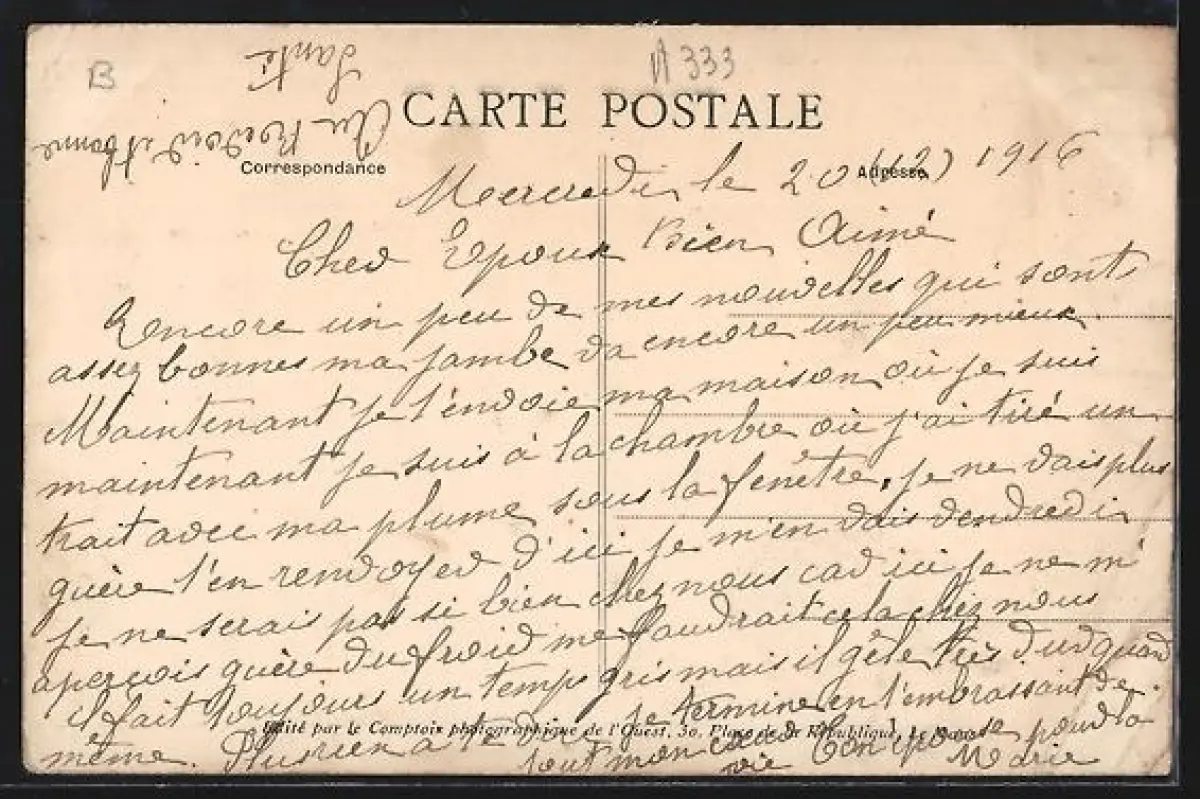 B
A 333
Au Revoir et bonne
Santé
CARTE POSTALE
Correspondance
Adresse
Mercredi le 20 (12) 1916
Cher Epoux Bien Aimé
Rencore un peu de mes nouvelles qui sont
assez bonnes ma jambe va encore un peu mieux.
Maintenant je t'envoie ma maison où je suis
maintenant je suis à la chambre où j'ai tiré un
trait avec ma plume sous la fenêtre, je ne vais plus
guère t'en renvoyer d'ici je m'en vais vendredi
je ne serais pas si bien chez nous car ici je ne m'
aperçois guère du froid me faudrait cela chez nous
il fait toujours un temps gris mais il gèle très dur quand
même. Plus rien à te dire je termine en t'embrassant de
tout mon cœur Ton épouse pour la
vie Marie
Edité par le Comptoir photographique de l'Ouest, 30, Place de la République, Le Mans